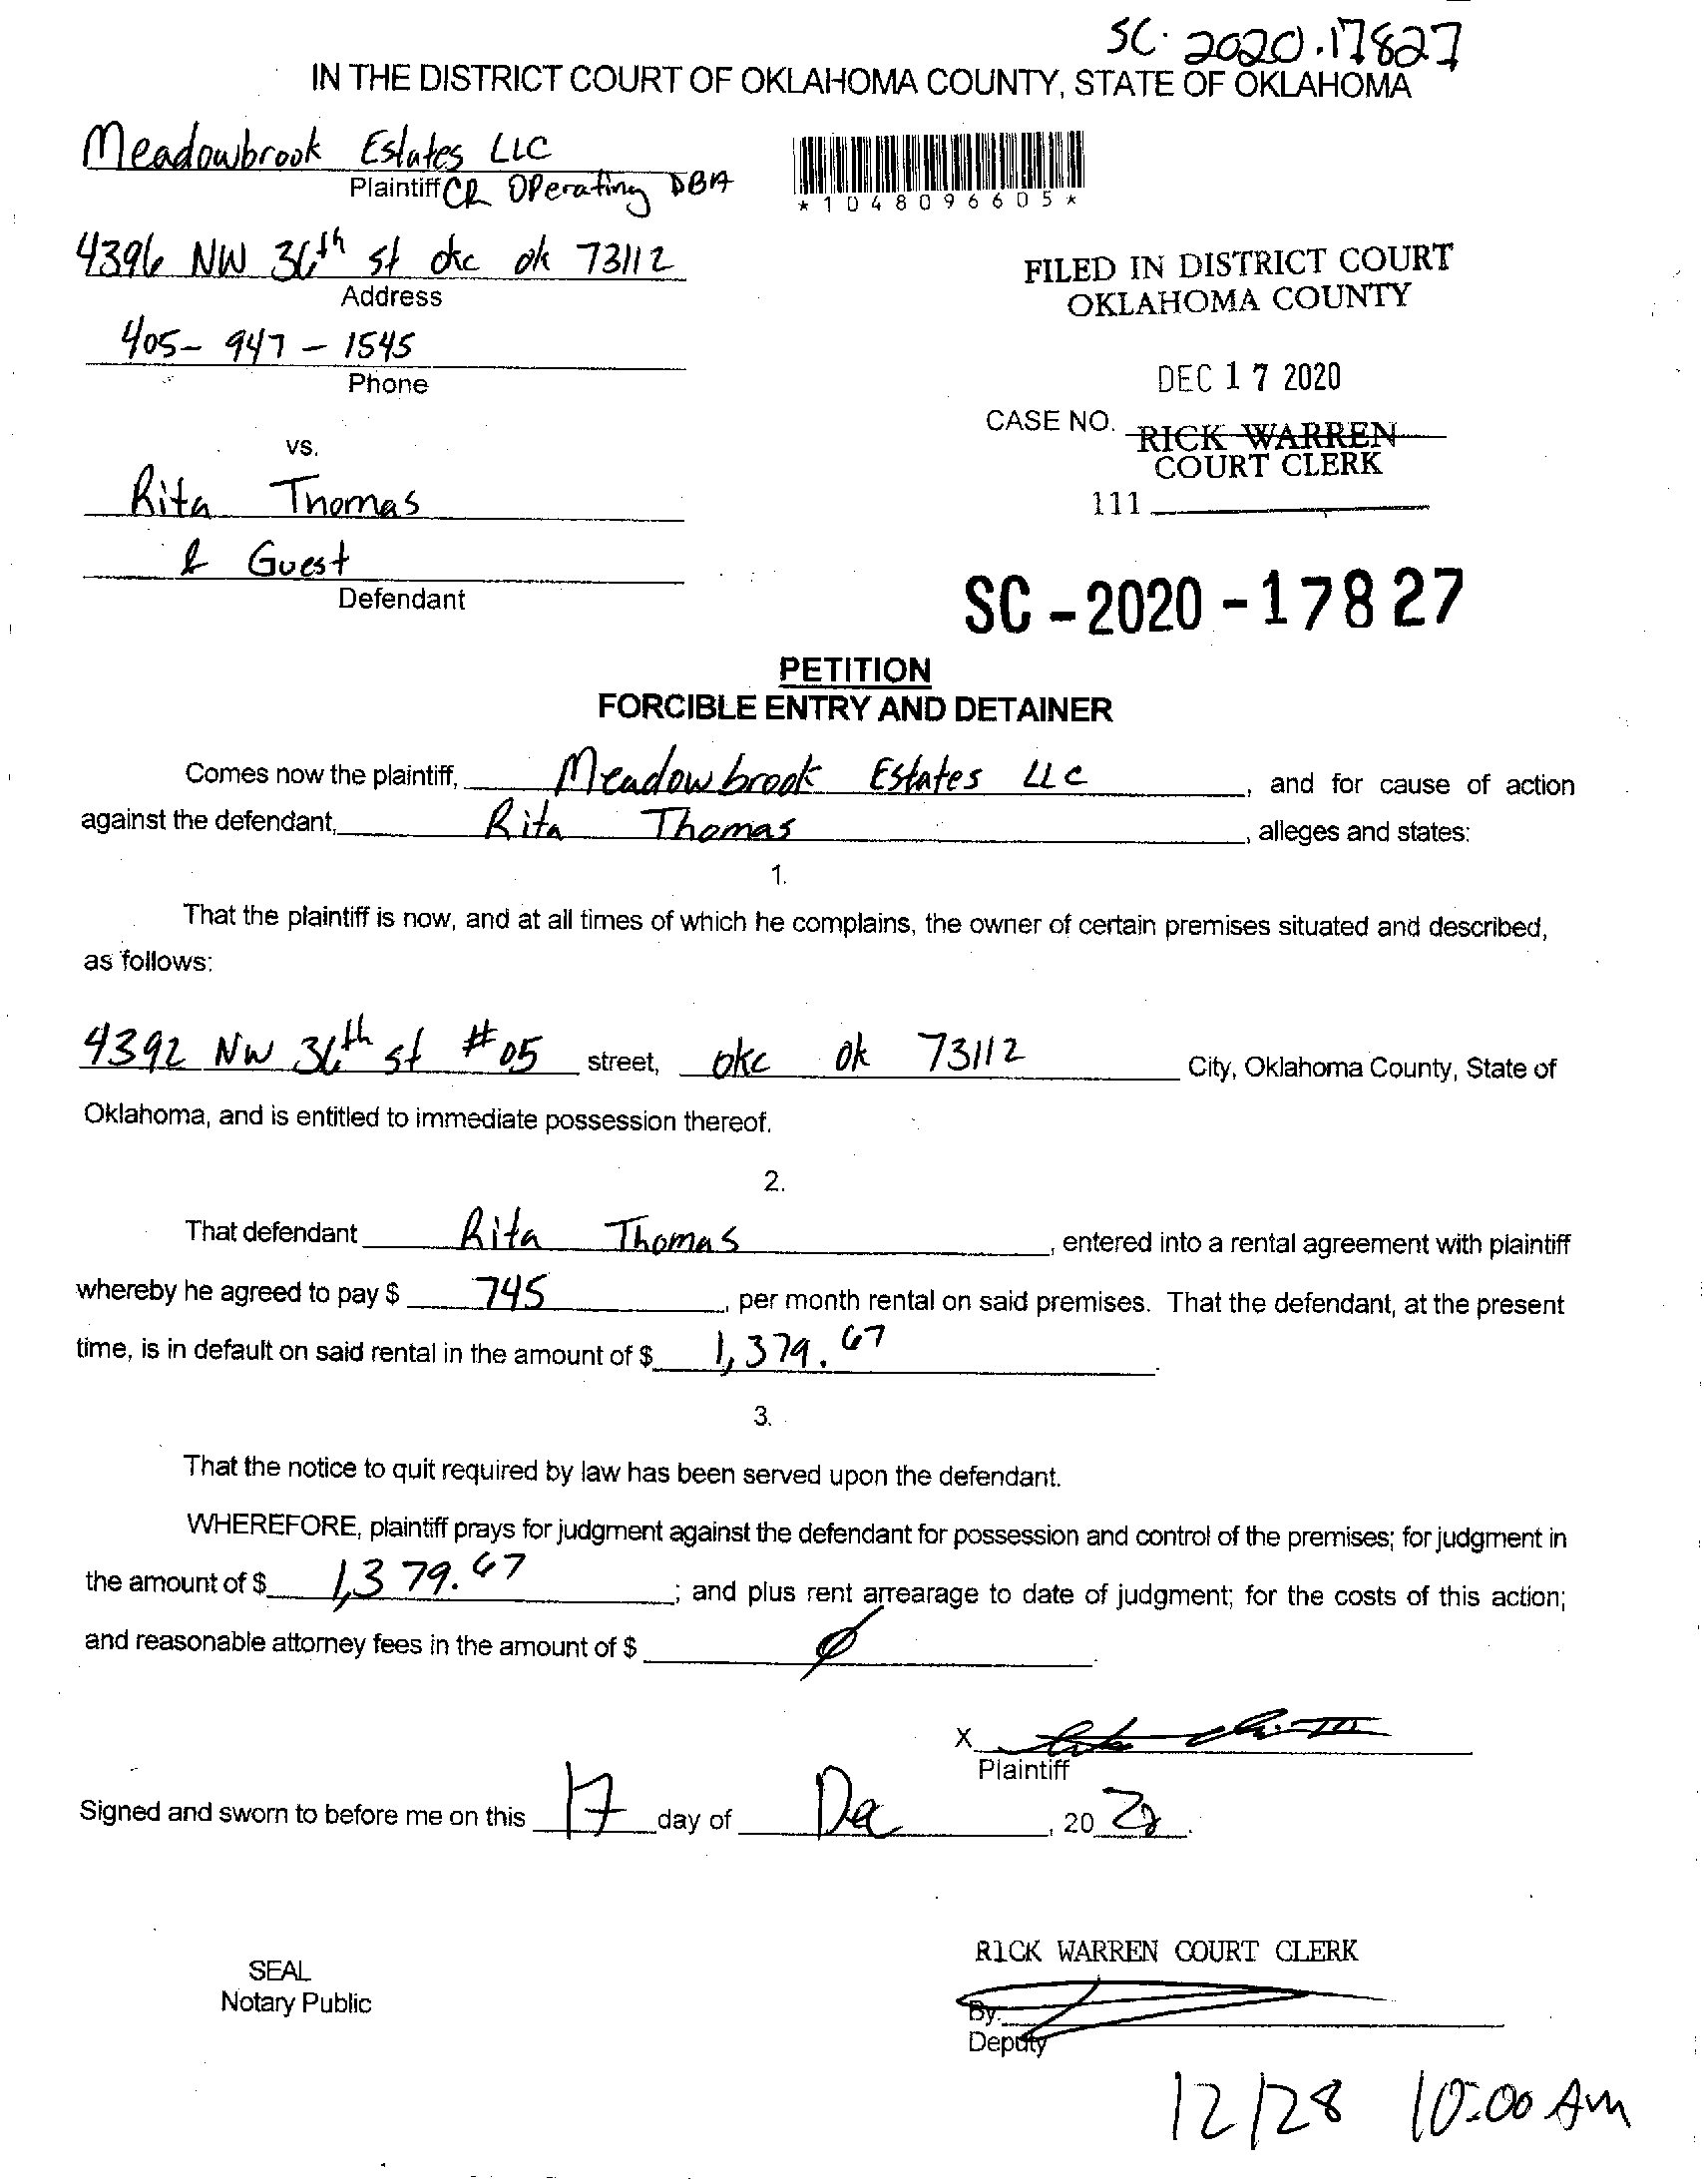 SC-2020-17827
IN THE DISTRICT COURT OF OKLAHOMA COUNTY, STATE OF OKLAHOMA
Meadowbrook Estates LLC
Plaintiff CR Operating DBA
*1048096605*
4396 NW 36th st okc ok 73112
Address
FILED IN DISTRICT COURT
OKLAHOMA COUNTY
405-947-1545
Phone
DEC 17 2020
CASE NO.
RICK WARREN
COURT CLERK
vs.
111
Rita Thomas
& Guest
Defendant
SC-2020-17827
PETITION
FORCIBLE ENTRY AND DETAINER
Comes now the plaintiff, Meadowbrook Estates LLC, and for cause of action
against the defendant, Rita Thomas, alleges and states:
1.
That the plaintiff is now, and at all times of which he complains, the owner of certain premises situated and described,
as follows:
4392 NW 36th st #05 street, okc ok 73112 City, Oklahoma County, State of
Oklahoma, and is entitled to immediate possession thereof.
2.
That defendant Rita Thomas, entered into a rental agreement with plaintiff
whereby he agreed to pay $ 745, per month rental on said premises. That the defendant, at the present
time, is in default on said rental in the amount of $ 1,379.67.
3.
That the notice to quit required by law has been served upon the defendant.
WHEREFORE, plaintiff prays for judgment against the defendant for possession and control of the premises; for judgment in
the amount of $ 1,379.67; and plus rent arrearage to date of judgment; for the costs of this action;
and reasonable attorney fees in the amount of $ Ø.
X
Plaintiff
Signed and sworn to before me on this 17 day of Dec, 20 20.
RICK WARREN COURT CLERK
SEAL
Notary Public
By:
Deputy
12/28 10:00 AM